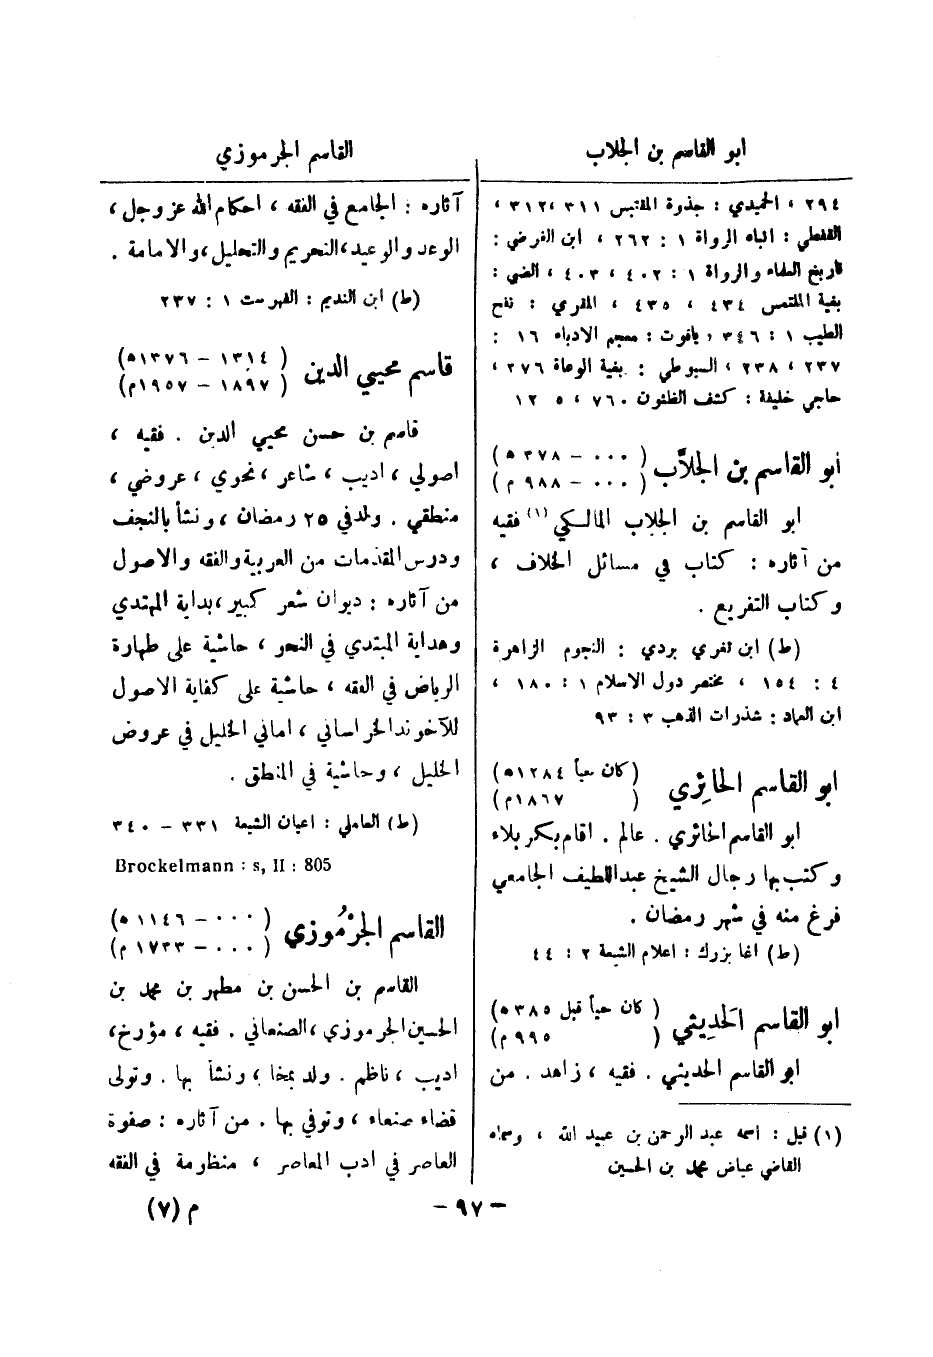 ابو القاسم بن الجلاب
٢٩٤ ، الحميدي : جذوة المقتبس ٣١١ ،٣١٢ ،
القفطي : انباه الرواة ١ : ٢٦٢ ، ابن الفرضي :
تاريخ العلماء والرواة ١ : ٤٠٢ ، ٤٠٣ ، الضبي :
بغية الملتمس ٤٣٤ ، ٤٣٥ ، المقري : نفح
الطيب ١ : ٣٤٦ ، ياقوت : معجم الادباء ١٦ :
٢٣٧ ، ٢٣٨ ، السيوطي : بغية الوعاة ٢٧٦ ،
حاجي خليفة : كشف الظنون ٧٦٠ ، ١٢٠٥
أبو القاسم بن الجلاَّب ( ٠٠٠ - ٣٧٨ ه )
( ٠٠٠ - ٩٨٨ م )
ابو القاسم بن الجلاب المالكي (١) فقيه
من آثاره : كتاب في مسائل الخلاف ،
وكتاب التفريع .
(ط) ابن تغري بردي : النجوم الزاهرة
٤ : ١٥٤ ، مختصر دول الاسلام ١ : ١٨٠ ،
ابن العماد : شذرات الذهب ٣ : ٩٣
ابو القاسم الحائِري (كان حياً ١٢٨٤ه)
( ١٨٦٧م)
ابو القاسم الحائري . عالم . اقام بكربلاء
وكتب بها رجال الشيخ عبد اللطيف الجامعي
فرغ منه في شهر رمضان .
(ط) اغا بزرك : اعلام الشيعة ٢ : ٤٤
ابو القاسم الحَدِيثي ( كان حياً قبل ٣٨٥ ه)
( ٩٩٥ م)
ابو القاسم الحديثي . فقيه ، زاهد . من
(١) قيل : اسمه عبد الرحمن بن عبيد الله ، وسماه
القاضي عياض محمد بن الحسين
القاسم الجرموزي
آثاره : الجامع في الفقه ، احكام الله عز وجل ،
الوعد والوعيد ،التحريم والتحليل ،والامامة .
(ط) ابن النديم : الفهرست ١ : ٢٣٧
قاسم محيي الدين ( ١٣١٤ - ١٣٧٦ه)
( ١٨٩٧ - ١٩٥٧م)
قاسم بن حسن محيي الدين . فقيه ،
اصولي ، اديب ، شاعر ، نحوي ، عروضي ،
منطقي . ولد في ٢٥ رمضان ، ونشأ بالنجف
ودرس المقدمات من العربية والفقه والاصول
من آثاره : ديوان شعر كبير ،بداية المهتدي
وهداية المبتدي في النحو ، حاشية على طهارة
الرياض في الفقه ، حاشية على كفاية الاصول
للآخوند الخراساني ، اماني الخليل في عروض
الخليل ، وحاشية في المنطق .
(ط) العاملي : اعيان الشيعة ٣٣١ - ٣٤٠
Brockelmann : s, II : 805
القاسم الجرْمُوزي ( ٠٠٠ - ١١٤٦ ه)
( ٠٠٠ - ١٧٣٣ م)
القاسم بن الحسن بن مطهر بن محمد بن
الحسين الجرموزي ،الصنعاني . فقيه ، مؤرخ،
اديب ، ناظم . ولد بمخا ، ونشأ بها . وتولى
قضاء صنعاء ، وتوفي بها . من آثاره : صفوة
العاصر في ادب المعاصر ، منظومة في الفقه
- ٩٧ -
م (٧)